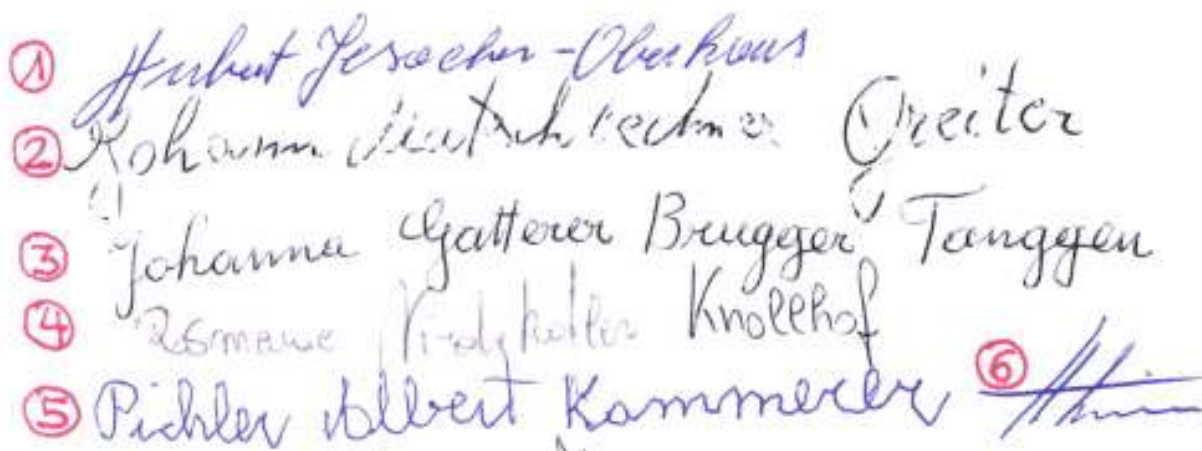 ① Hubert Jesacher - Oberhaus
② Johann Mutschlechner Greiter
③ Johanna Gatterer Brugger Tanggen
④ Rosmarie Knollhof
⑤ Pichler Albert Kammerer ⑥